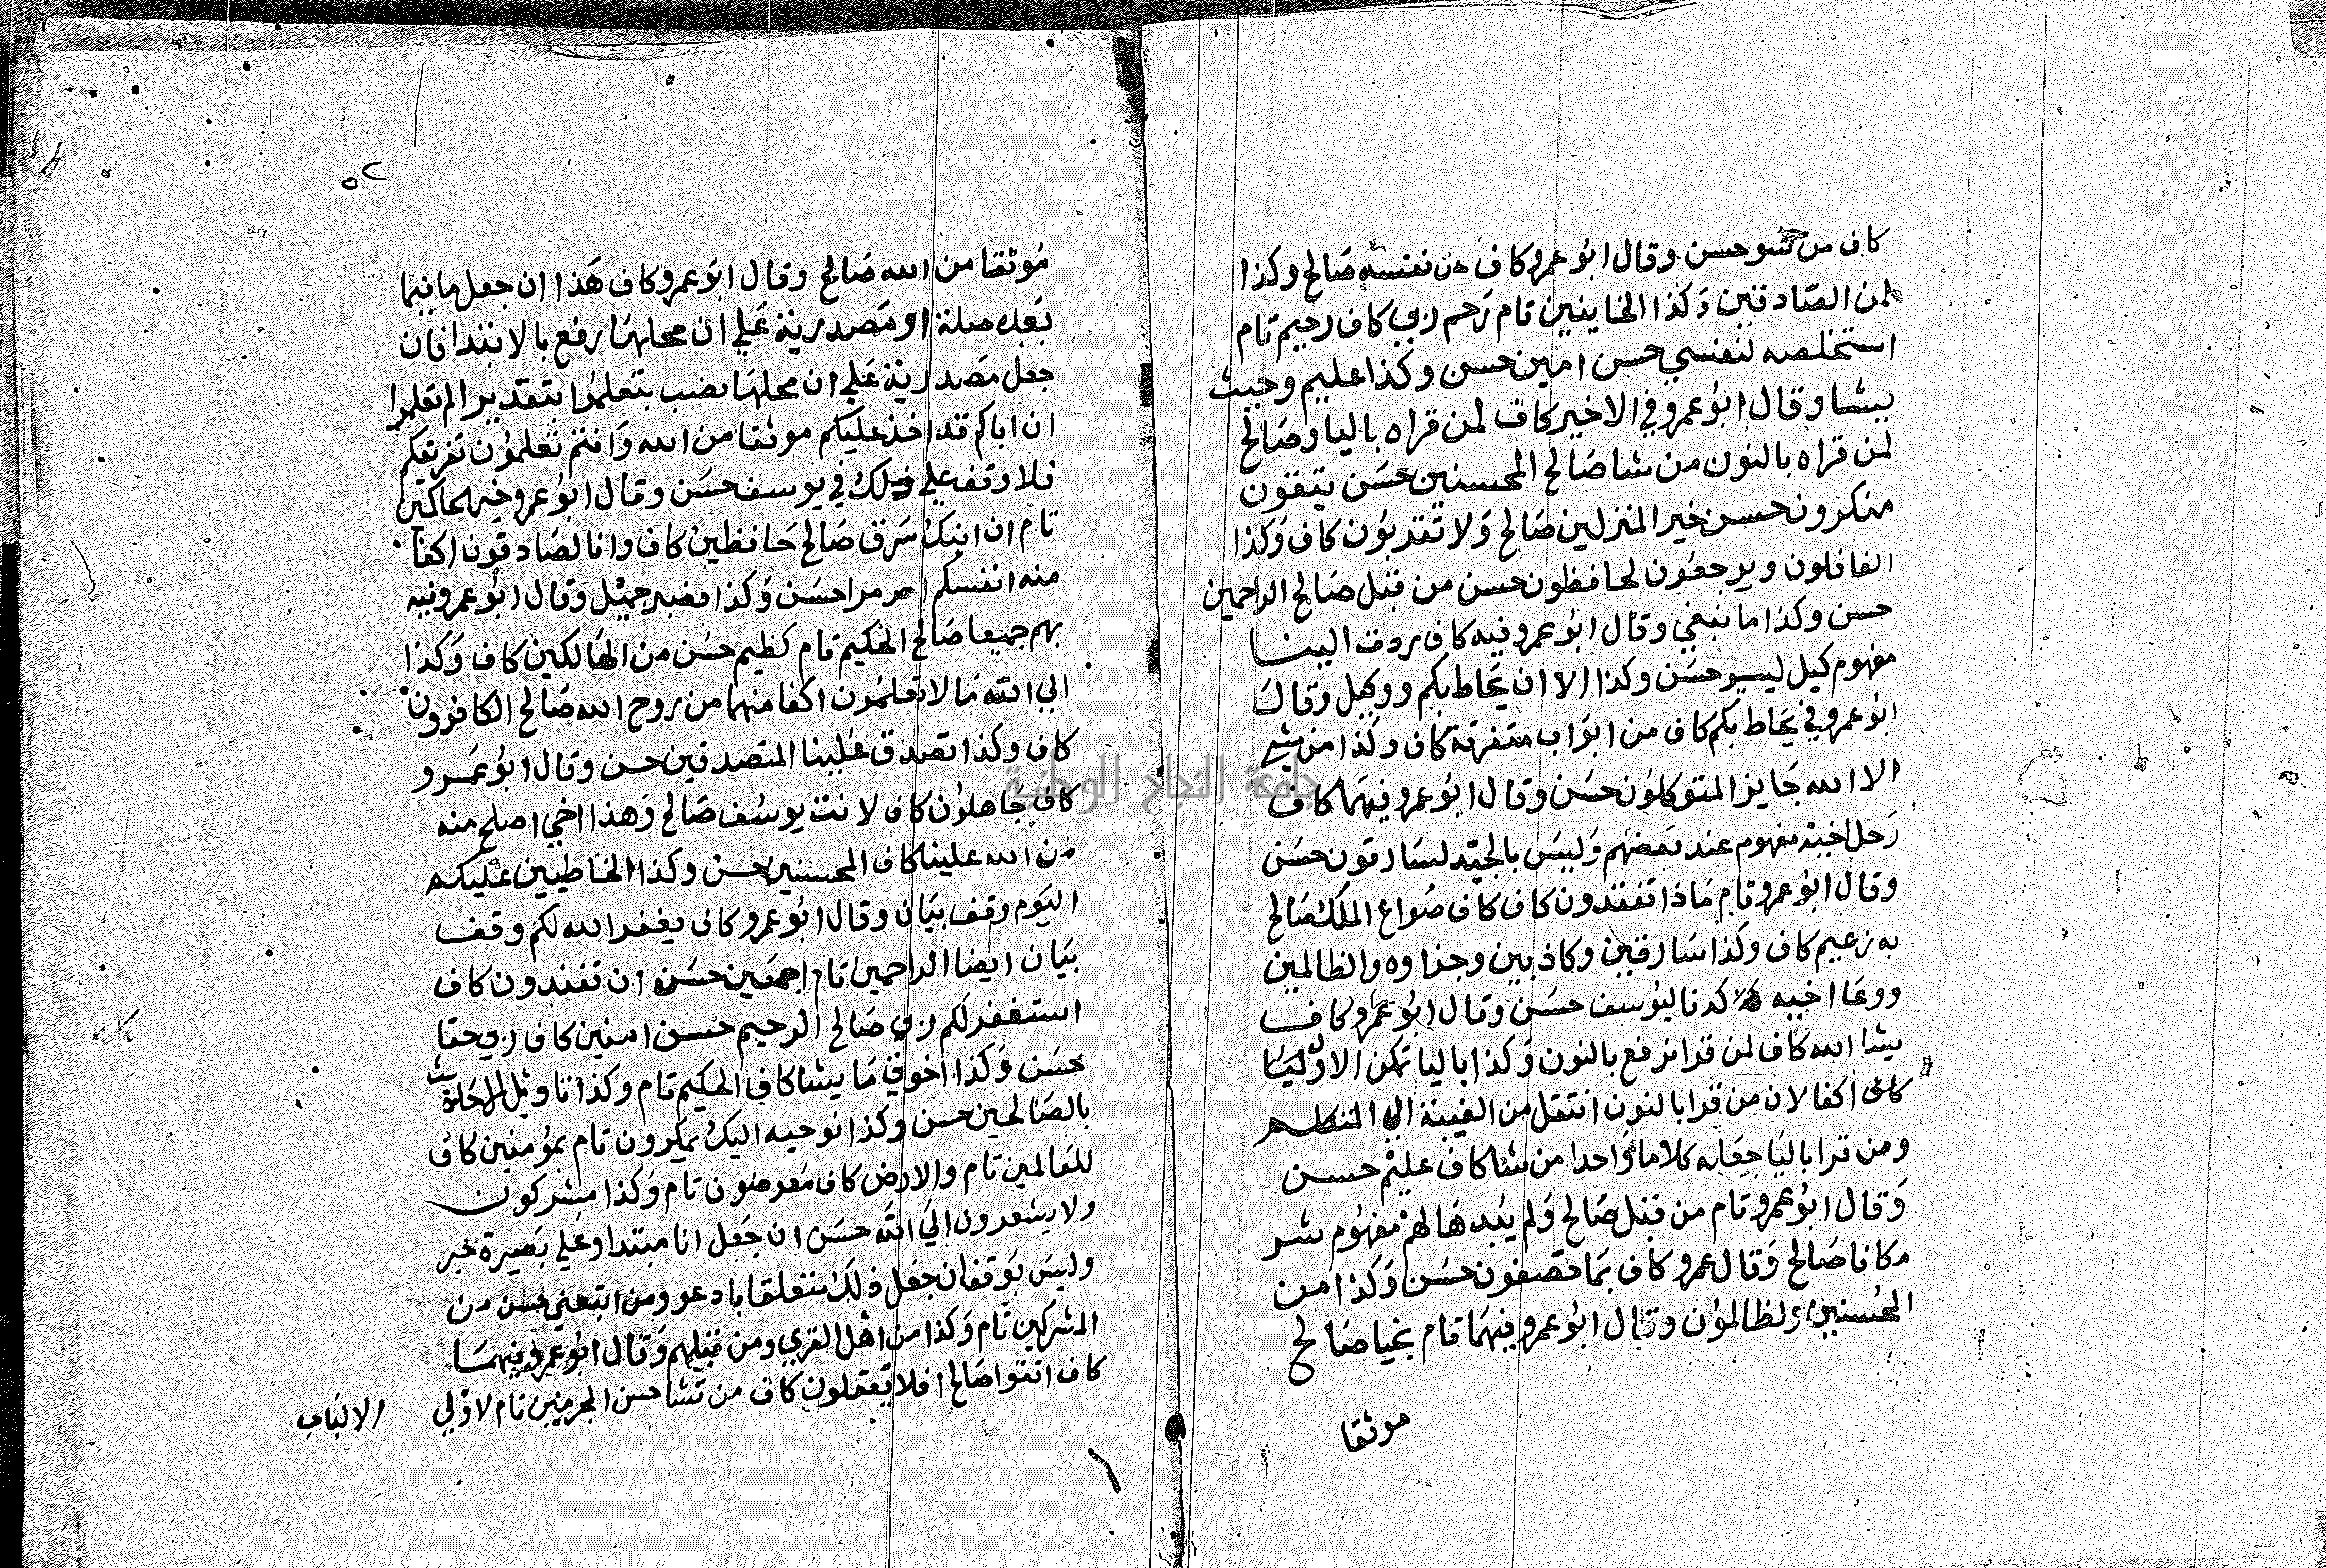 كاف من سو حسن وقال ابو عمرو كاف عن نفسه صالح وكذا
لمن الصادقين وكذا الخاينين تام رحم ربي كاف رحيم تام
استخلصه لنفسي حسن امين حسن وكذا عليم وحيث
يشا وقال ابو عمرو في الاخير كاف لمن قراه باليا وصالح
لمن قراه بالنون من نشا صالح المحسنين حسن يتقون
منكرون حسن خير المنزلين صالح ولا تقربون كاف وكذا
الفاعلون ويرجعون لحافظون حسن من قبل صالح الراحمين
حسن وكذا ما نبغي وقال ابو عمرو فيه كاف ردت الينا
مفهوم كيل يسير حسن وكذا الا ان يحاط بكم ووكيل وقال
ابو عمرو في يحاط بكم كاف من ابواب متفرقة كاف وكذا من شي
الا الله جايز المتوكلون حسن وقال ابو عمرو فيهما كاف
رحل اخيه مفهوم عند بعضهم وليس بالجيد لسارقون حسن
وقال ابو عمرو تام ماذا تفقدون كاف كاف صواع الملك صالح
به زعيم كاف وكذا سارقين وكاذبين وجزاوه والظالمين
ووعا اخيه كدنا ليوسف حسن وقال ابو عمرو كاف
يشا الله كاف لمن قرا نرفع بالنون وكذا باليا لكن الاول
كاف اكفا لان من قرا بالنون انتقل من الغيبة الي التكلم
ومن قرا باليا جعله كلاما واحدا من نشا كاف عليم حسن
وقال ابو عمرو تام من قبل صالح ولم يبدها لهم مفهوم شر
مكانا صالح وقال عمرو كاف بما تصفون حسن وكذا من
المحسنين ولظالمون وقال ابو عمرو فيهما تام نجيا صالح
موثقا
٥٢
موثقا من الله صالح وقال ابو عمرو كاف هذا ان جعل ما فيما
بعده صلة او مصدرية علي ان محلها رفع بالابتدا فان
جعل مصدرية علي ان محلها نصب بتعلموا بتقدير الم تعلموا
ان اباكم قد اخذ عليكم موثقا من الله وانتم تعلمون تفريقكم
فلا وقف علي ذلك في يوسف حسن وقال ابو عمرو خير الحاكمين
تام ان ابنك سرق صالح حافظين كاف وانا لصادقون اكفا
منه انفسكم امرا حسن وكذا فصبر جميل وقال ابو عمرو فيه
بهم جميعا صالح الحكيم تام كظيم حسن من الهالكين كاف وكذا
الي الله ما لا تعلمون اكفا منهما من روح الله صالح الكافرون
كاف وكذا تصدق علينا المتصدقين حسن وقال ابو عمرو
كاف جاهلون كاف لانت يوسف صالح وهذا اخي اصلح منه
من الله علينا كاف المحسنين حسن وكذا الخاطيين عليكم
اليوم وقف بيان وقال ابو عمرو كاف يغفر الله لكم وقف
بيان ايضا الراحمين تام اجمعين حسن ان تفندون كاف
استغفر لكم ربي صالح الرحيم حسن امنين كاف ربي حقا
حسن وكذا اخوتي ما يشا كاف الحكيم تام وكذا تاويل الاحاديث
بالصالحين حسن وكذا نوحيه اليك يمكرون تام بمومنين كاف
للعالمين تام والارض كاف معرضون تام وكذا مشركون
ولا يشعرون الي الله حسن ان جعل انا مبتدا وعلي بصيرة خبر
وليس بوقف ان جعل ذلك متعلقا بادعو ومن اتبعني حسن من
المشركين تام وكذا من اهل القري ومن قبلهم وقال ابو عمرو فيهما
كاف اتقوا صالح افلا تعقلون كاف من نشا حسن المجرمين تام لاولي
الالباب
جامعة النجاح الوطنية